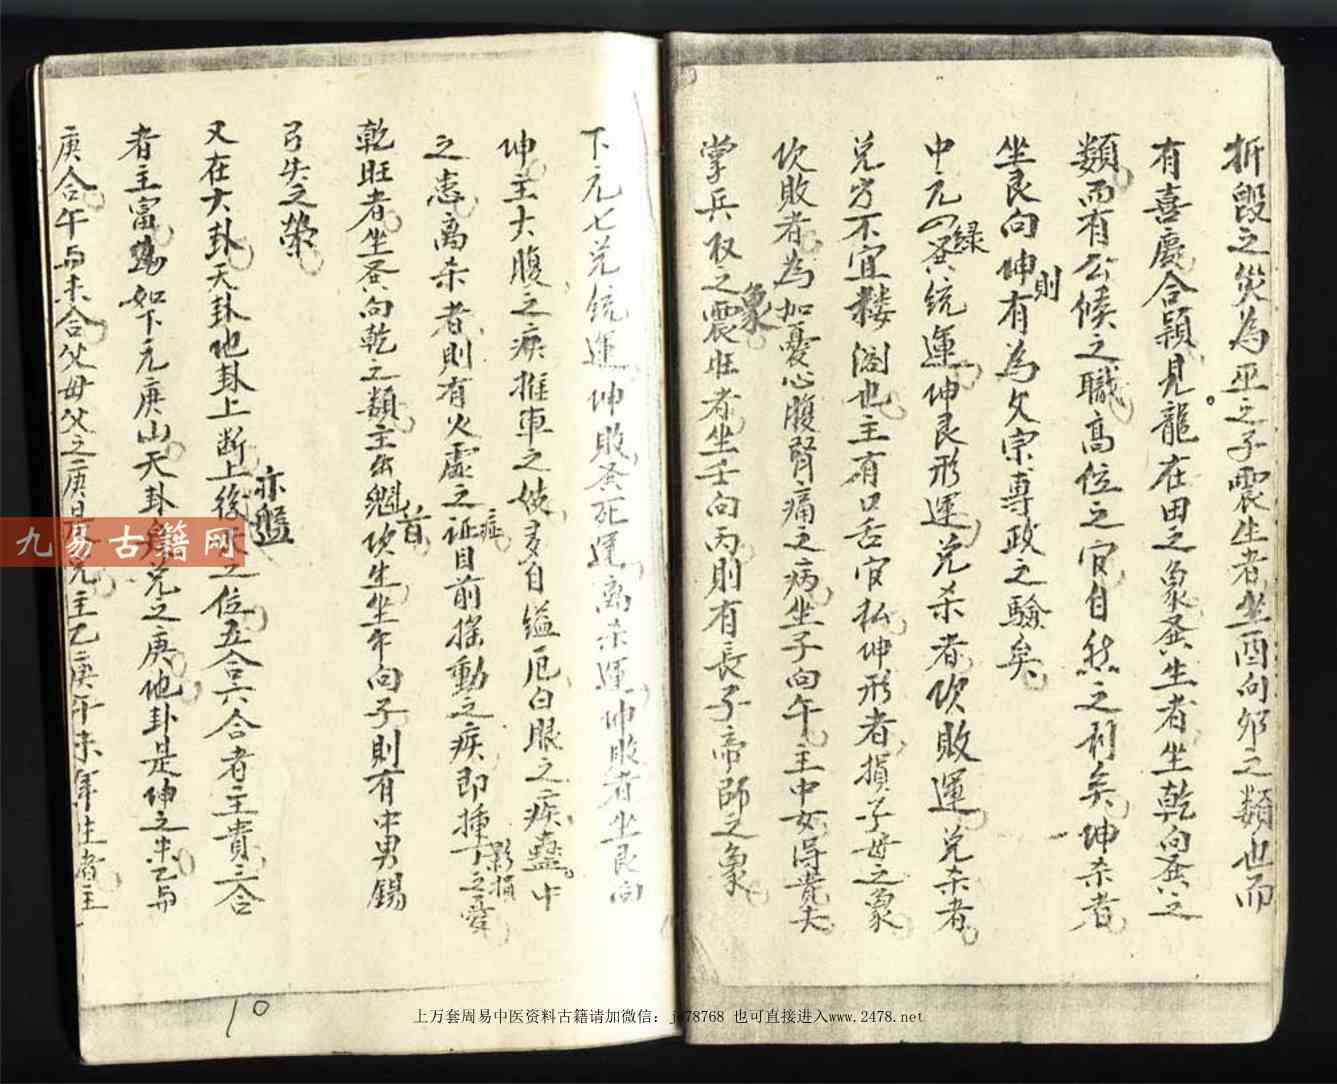 折毀之災為巫之子震生者坐酉向夘之類也而
有喜慶合穎見龍在田之象巽生者坐乾向巽之
類而有公候之職高位之官自然之利矣坤杀者
坐艮向坤則有為父宗專政之驗矣
中元四綠巽統運坤艮形運兌杀者坎敗運兌杀者
兌方不宜楼阁也主有口舌官私坤形者損子母之象
坎敗者為加憂心腹腎痛之病坐子向午主中女得貴夫
掌兵权之象震旺者坐壬向丙則有長子帝師之象
下元七兌統運坤敗巽死運離杀運坤敗者坐艮向
坤主大腹之疾推車之妓多自缢厄白眼之疾蠱中
之患离杀者則有火虛之症目前摇動之疾即撞之
乾旺者坐巽向乾之類主出魁首坎生坐午向子則有中男錫
弓矢之榮
又在大卦天卦他卦上断上後之位五合六合者主貴三合
亦盤
者主富 如下元庚山天卦 兌之庚他卦是坤之未乙与
庚合午与未合父母父之庚 兄主乙庚午未年生者主
10
九易古籍网
上万套周易中医资料古籍请加微信：j678768 也可直接进入www.2478.net